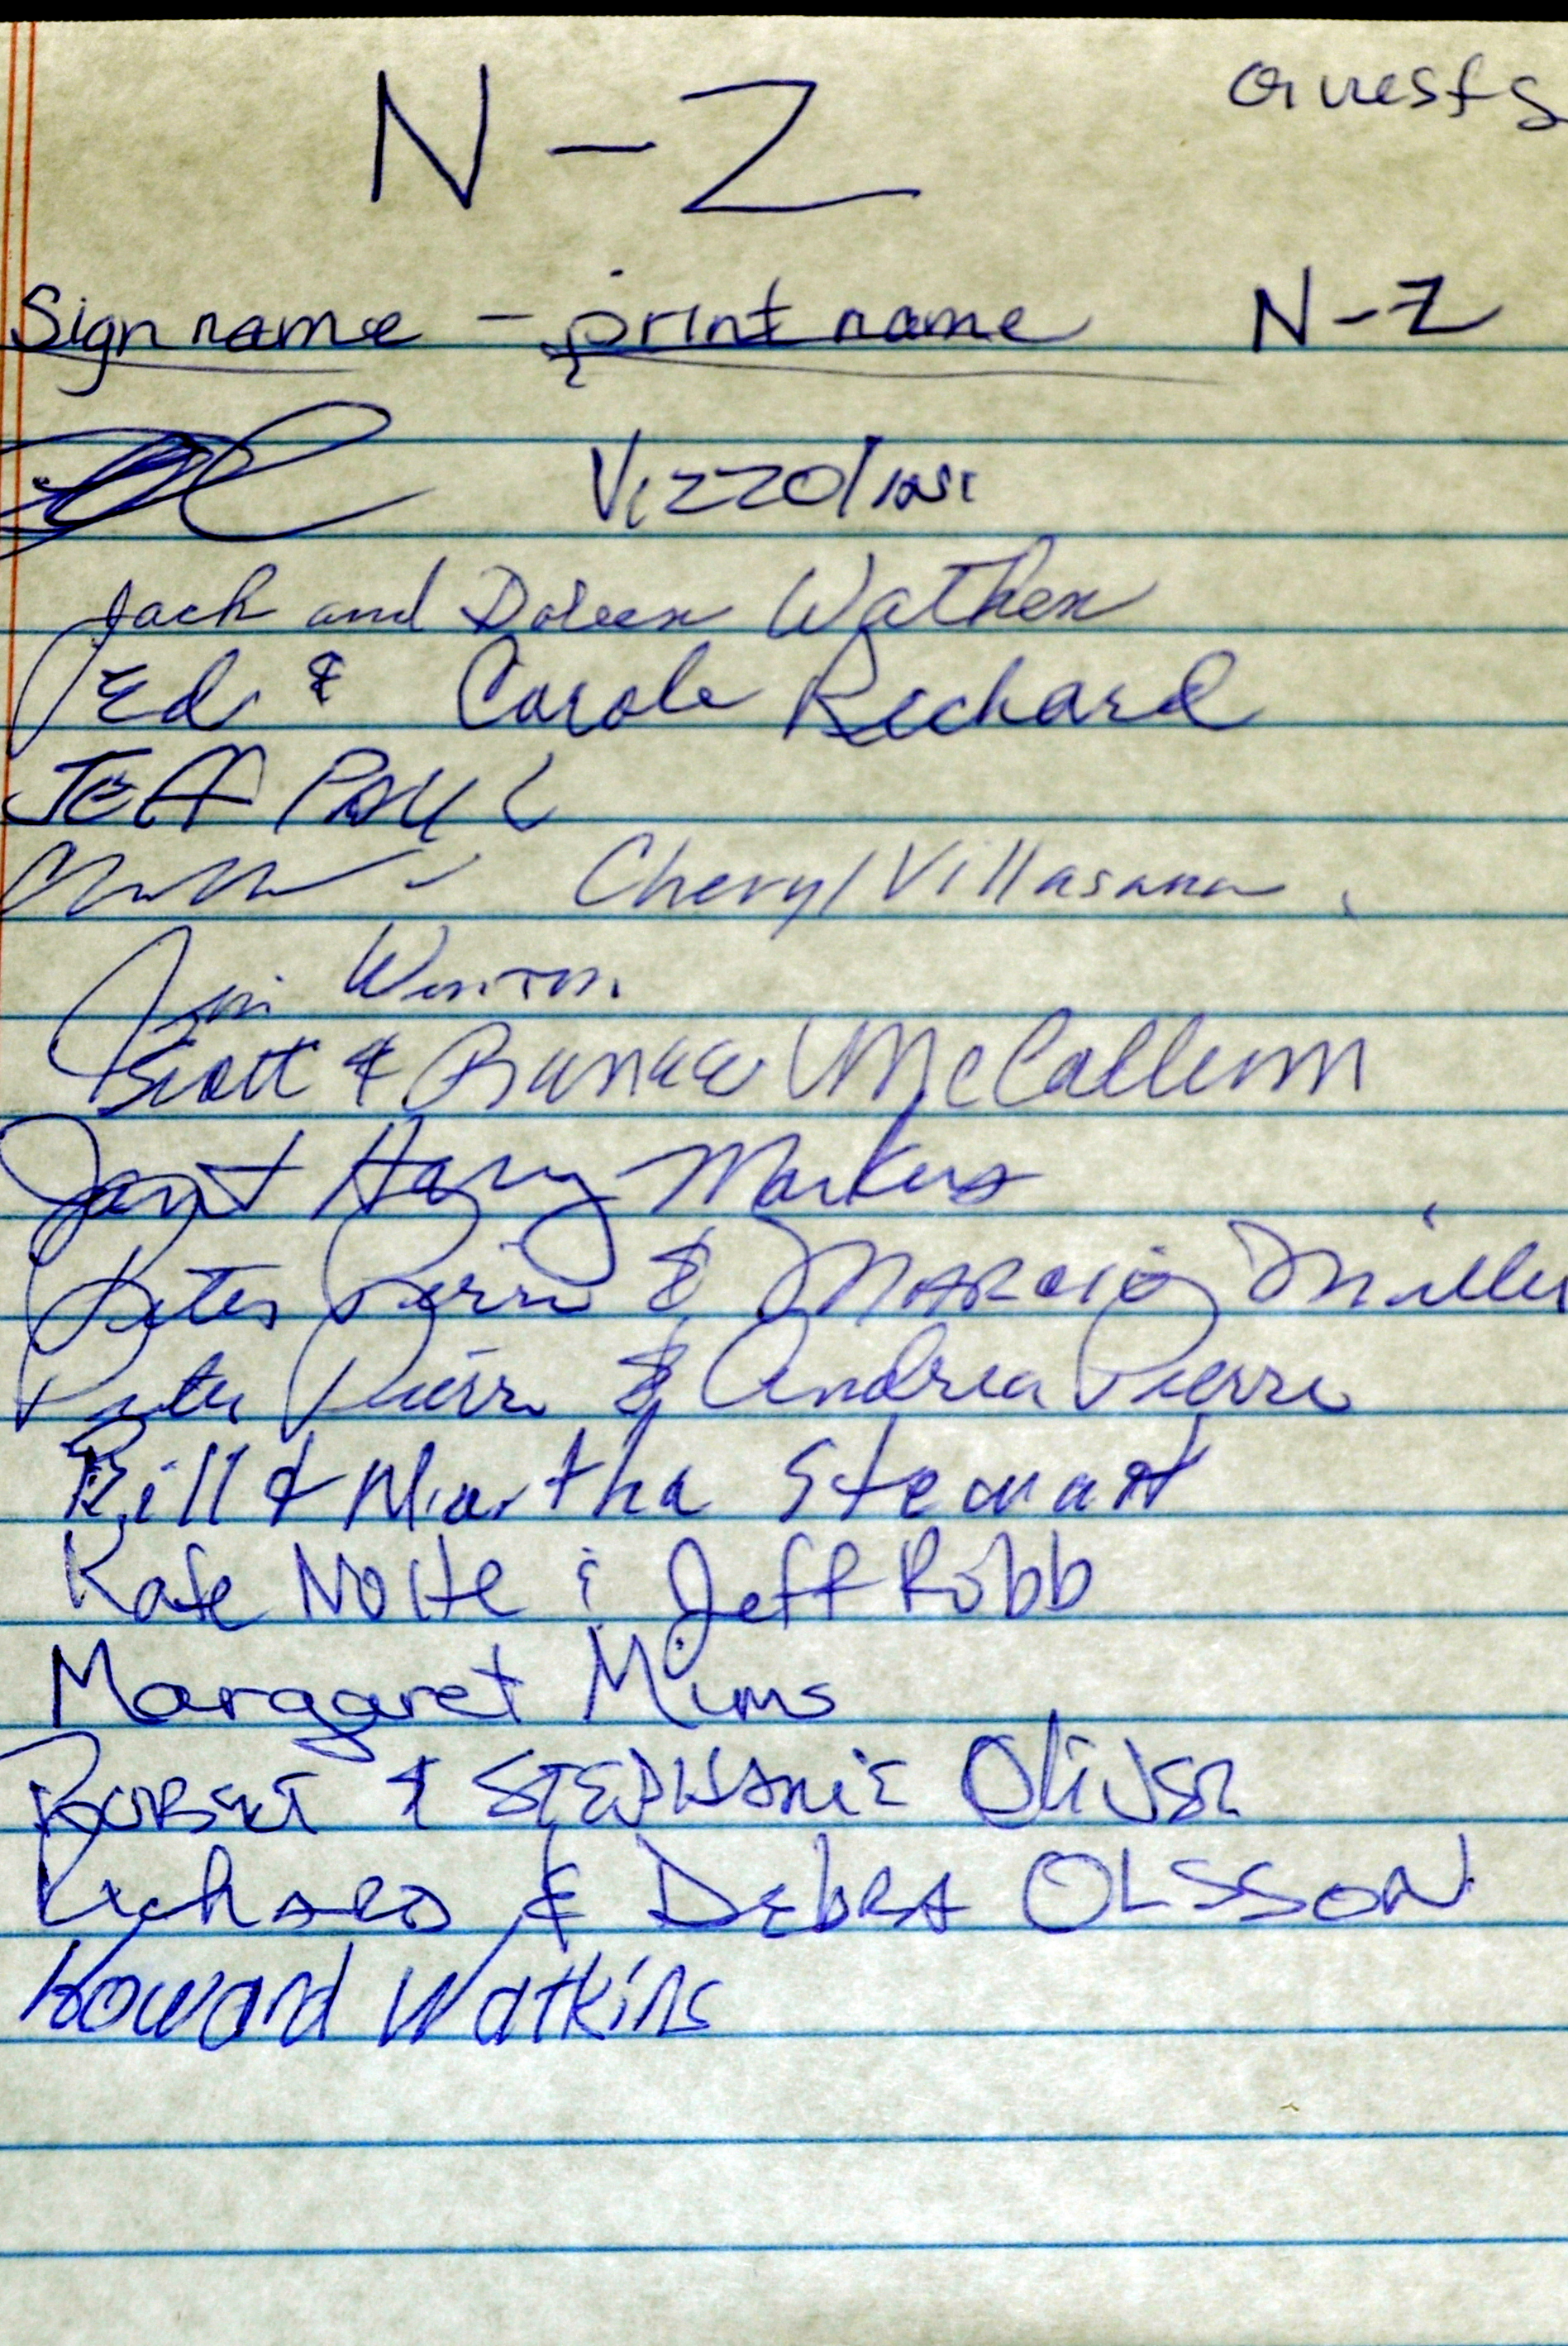 Guests
N-Z
Sign name - print name N-Z
Vizzolini
Jack and Doleen Wathen
Ed & Carole Richard
JEFF PAUL
Cheryl Villasana
Jim
Scott & McCallum
Janet Harry Markus
Peter Pierre & MARCIA Miller
Peter Pierre & Andrea Pierre
Bill & Martha Stewart
Kate Nolte & Jeff Robb
Margaret Mims
ROBERT & STEPHANIE OLIVER
RichARD & DEbRA OLSSON
Howard Watkins